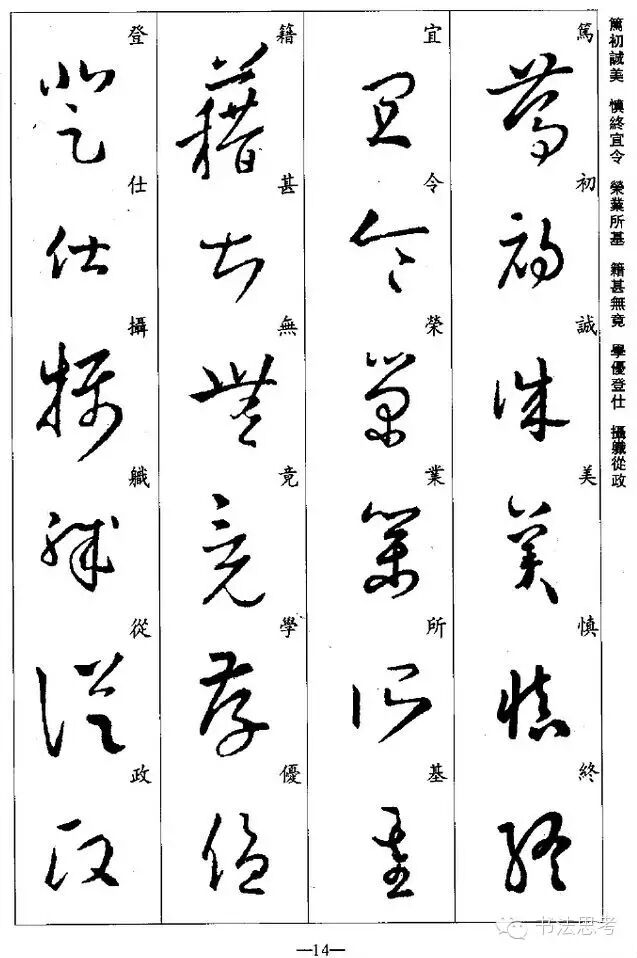 篤初誠美 慎終宜令 榮業所基 籍甚無竟 學優登仕 攝職從政
篤初誠美慎終
宜令榮業所基
籍甚無竟學優
登仕攝職從政
—14—
书法思考